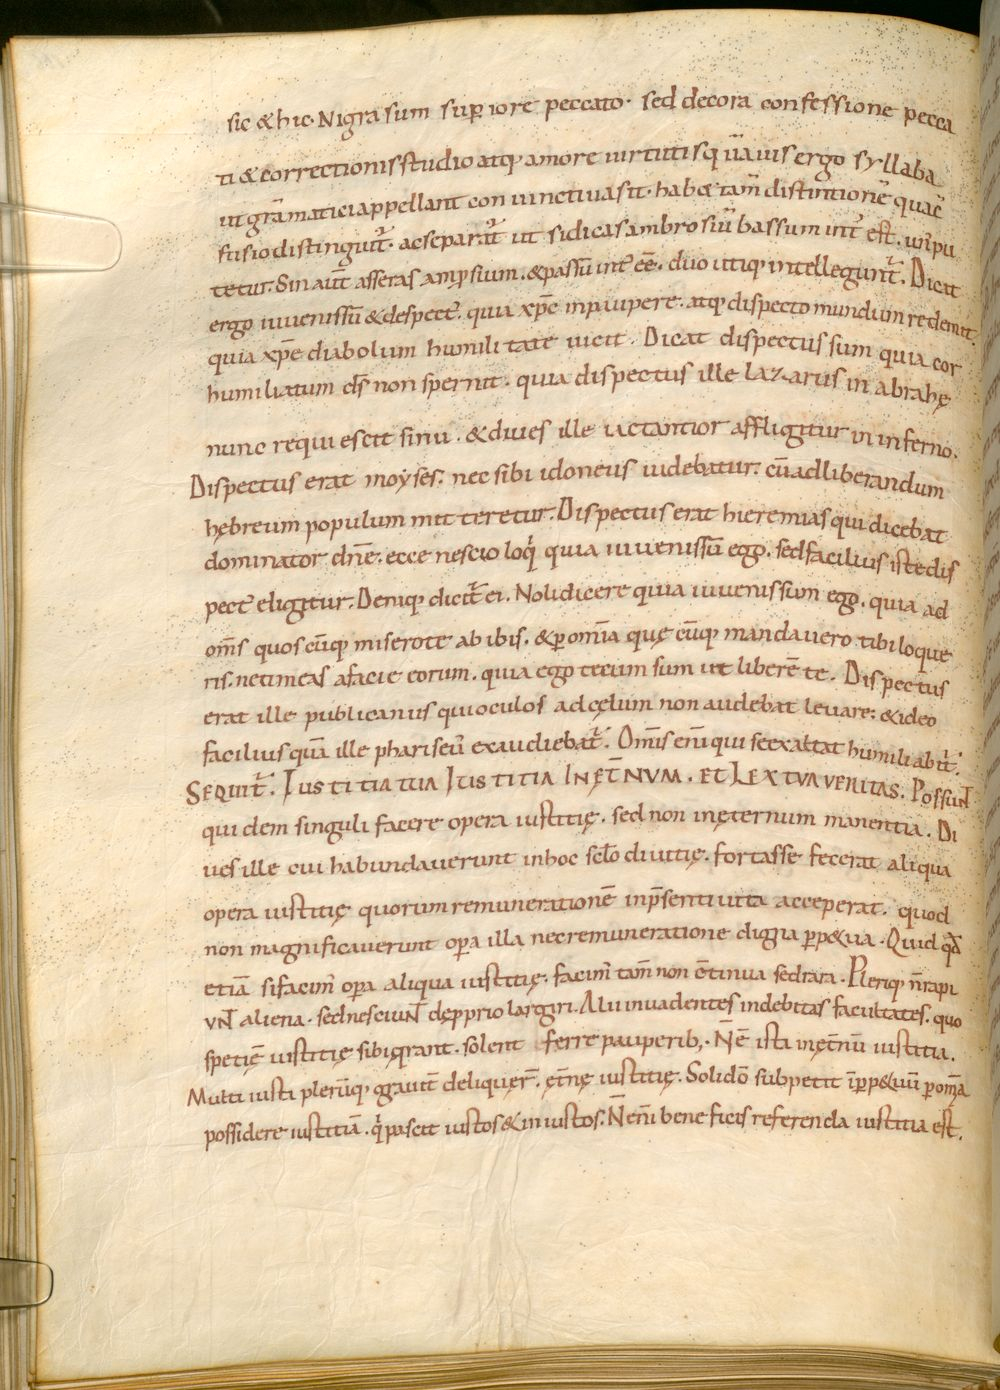 sic & hic. Nigra sum sup̱iore peccato. sed decora confessione pecca
ti & correctionis studio atq; amore uirtutis q̄ua uis ergo syllaba
ut gra̅matici appellant coniunctiua sit. hab& tam̅ distintione̅ quae̅
fusio distinguit̅. ac separat̅ ut si dicas ambrosiu̅ bassum int̅ est. un̅ pu
tetur. Sin aut̅ asseras amp̱sium. & passu̅ int̅ ee̅. duo utiq; intellegunt̅. Dicat
ergo iuuenissu̅ & despect̅. quia xp̅c in paupere. atq; dispecto mundum redemit.
quia xp̅c diabolum humilitate uicit. Dicat dispectus sum quia cor
humiliatum d̅s non spernit. quia dispectus ille lazarus in abrahę
nunc requiescit sinu. & diues ille iactantior affligitur in inferno.
Dispectus erat moyses. nec sibi idoneus uidebatur. cu̅ ad liberandum
hębreum populum mitteretur. Dispectus erat hieremias qui dicebat
dominator dn̅e. ecce nescio loqͥ quia iuuenissu̅ ego. sed facilius iste dis
pect̅ eligitur. Deniq; dicit̅ ei. Noli dicere quia iuuenis sum ego. quia ad
om̅s quoscu̅q; misero te ab ibis. & p̱ om̅ia quę cu̅q; mandauero tibi loque
ris. ne timeas a facie eorum. quia ego tecum sum ut libere̅ te. Dispectus
erat ille publicanus qui oculos ad cęlum non audebat leuare. & ideo
facilius qua̅ ille phariseu̅ exaudiebat̅. Om̅is eni̅ qui se exaltat humiliabit̅.
SEQUIT̅. IUSTITIA TUA IUSTITIA IN ĘT̅NVM. ET LEX TVA VERITAS. Possun̅t
quidem singuli facere opera iustitię. sed non in ęternum manentia. Di
ues ille cui habundauerunt in hoc sc̅lo diuitię. fortasse fecerat aliqua
opera iustitię quorum remuneratione̅ in p̅senti uita acceperat. quod
non magnificauerunt op̱a illa nec remuneratione digna p̱p&ua. Quid qd̅
etia̅ si facim̅ op̱a aliqua iustitię. facim̅ tam̅ non co̅tinua sed rara. Pleriq; n̅ rapi
VNT aliena. sed nesciuNT de p̱prio largiri. Alii inuadentes indebitas facultates. quo
spetie̅ iustitię sibi qęrant. solent ferre pauperib;. N̅e̅ ista in ęt̅nu̅ iustitia.
Multi iusti pleru̅q; grauit̅ deliquer̅. ęt̅nę iustitię. Soli do̅ subpetit i̅p̱p&uu̅ p̱ om̅a
possidere iustitia̅. qͥ pascit iustos & iniustos. N̅ eni̅ beneficiis referenda iustitia est.